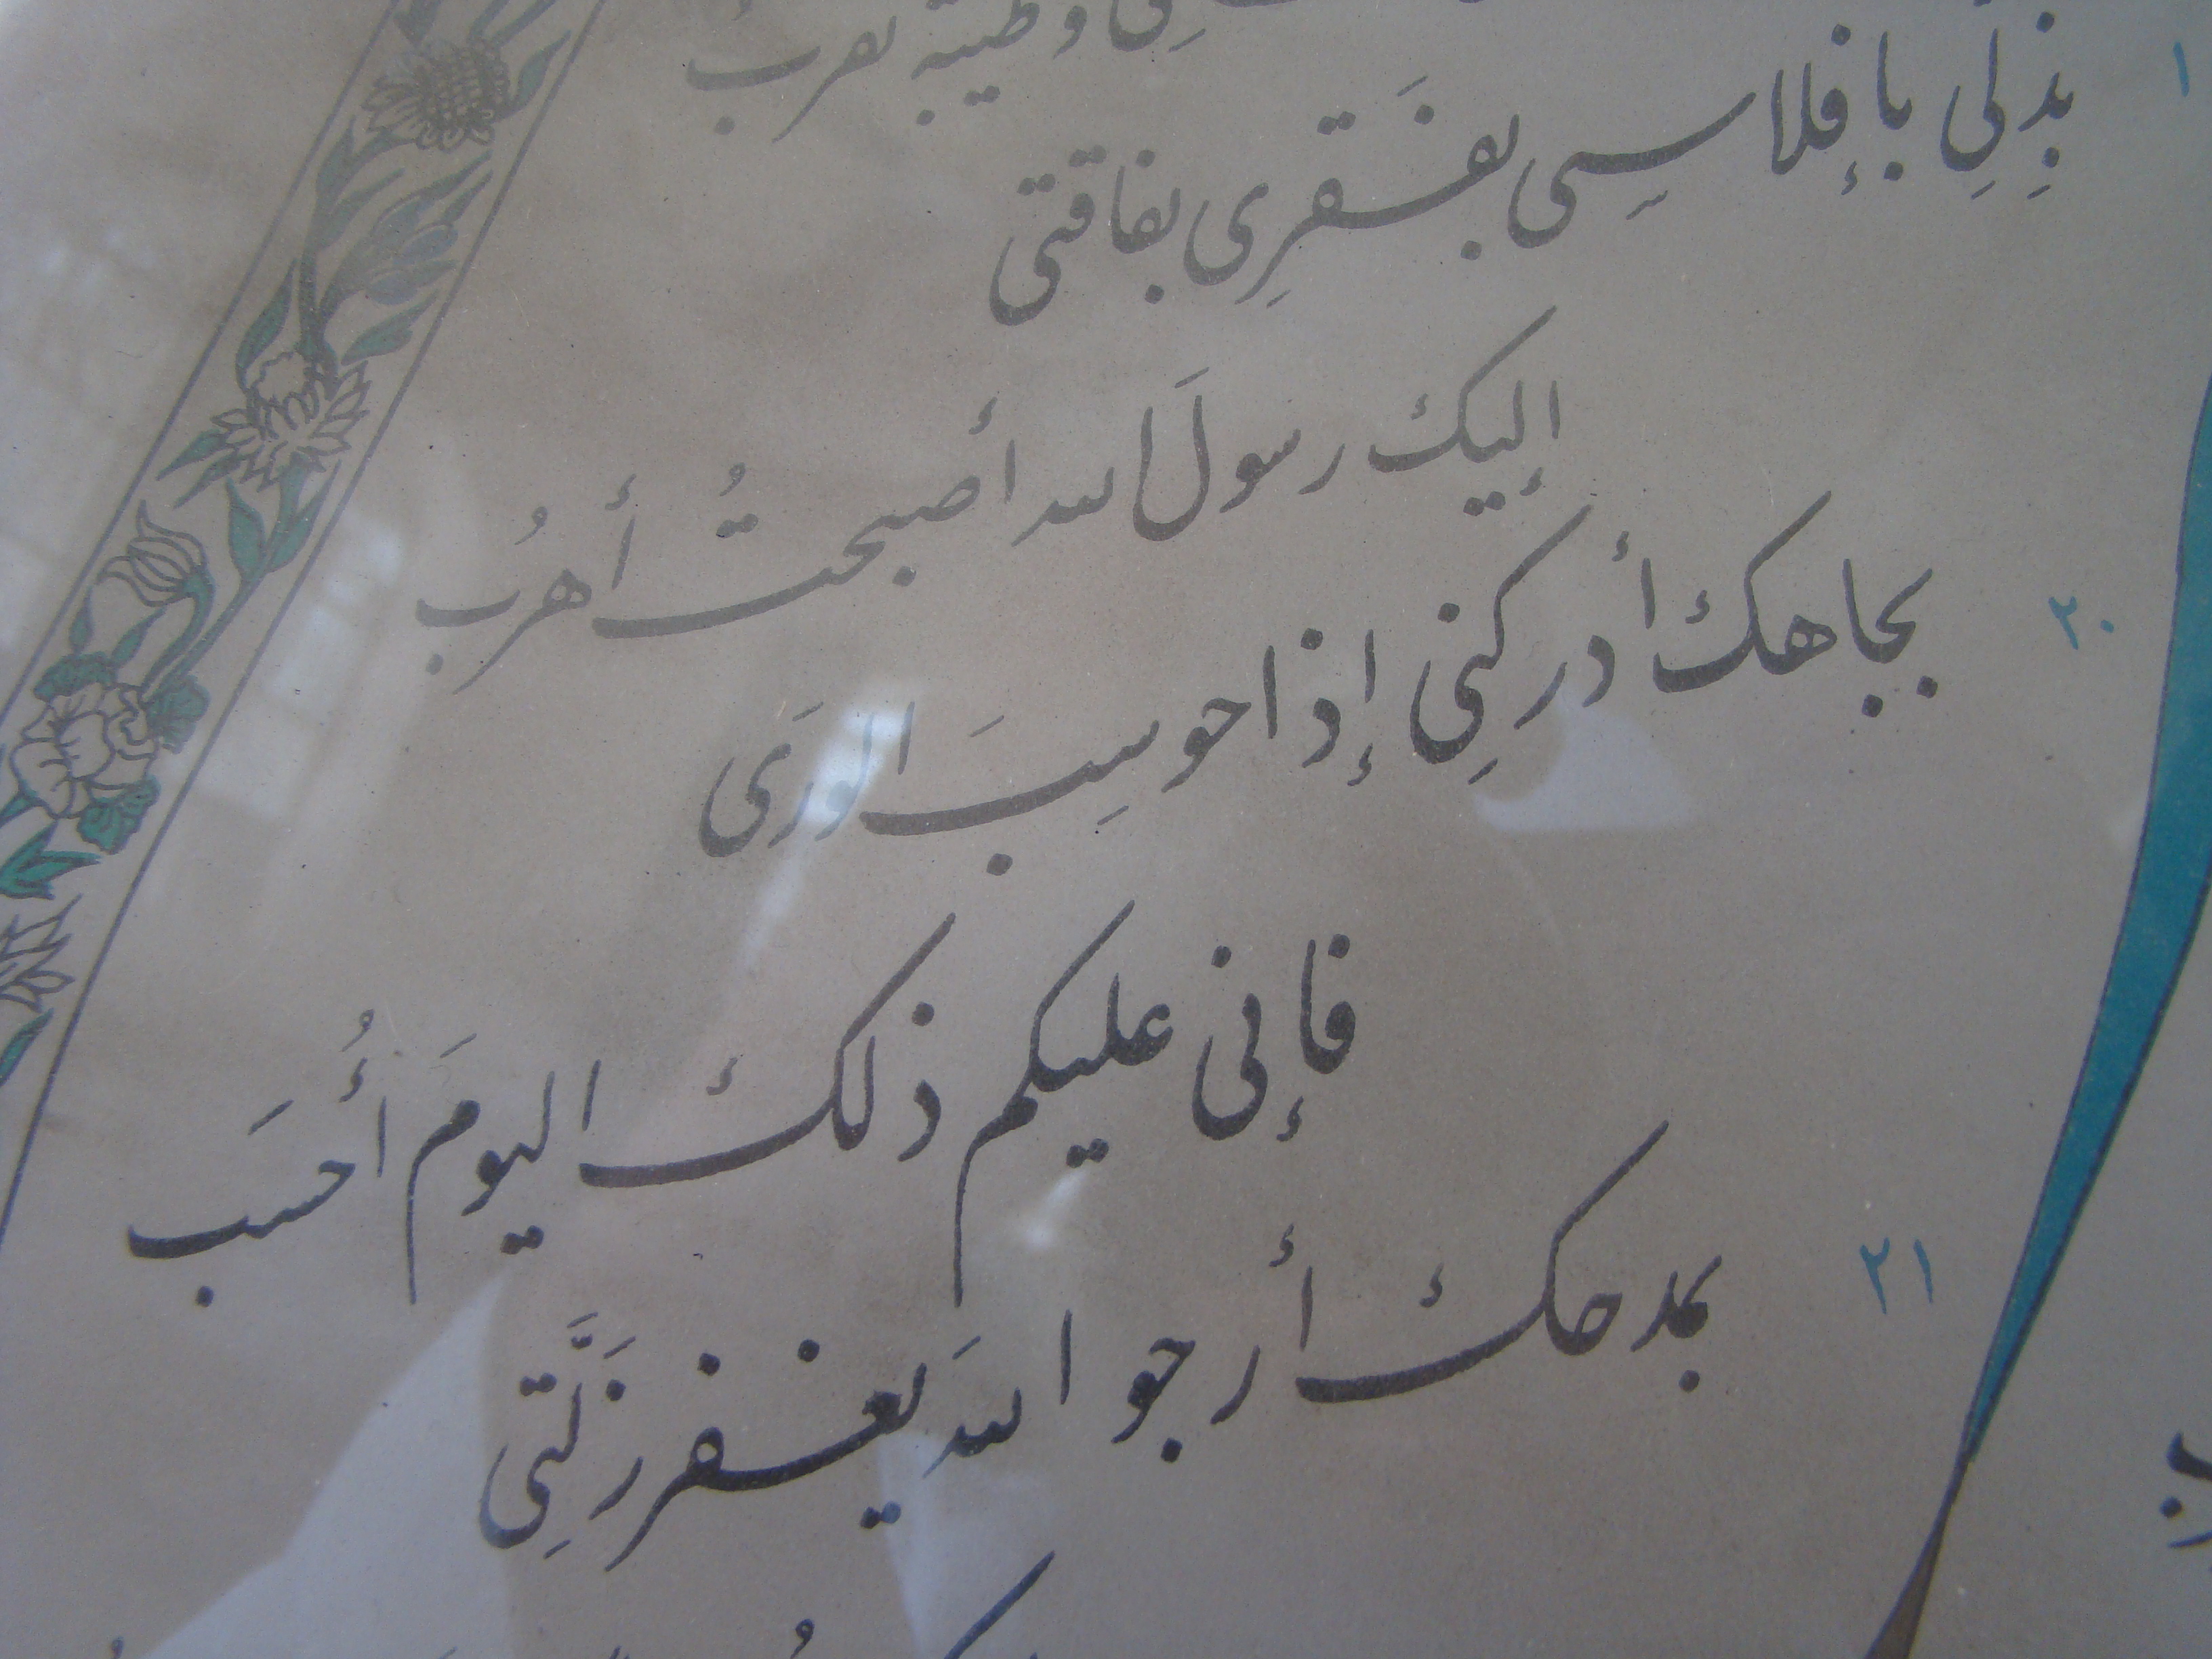 وطيبة تعربُ
١
بِذِلِّي بإفلاسِى بفَقرِى بفاقتى
إليك رسولَ الله أصبحتُ أهرُب
٢٠
بجاهك أدركنِى إذا حوسِبَ الورَى
فإنى عليكم ذلك اليومَ أُحسَب
٢١
بمدحك أرجو اللهَ يغفر زَلَّتِى